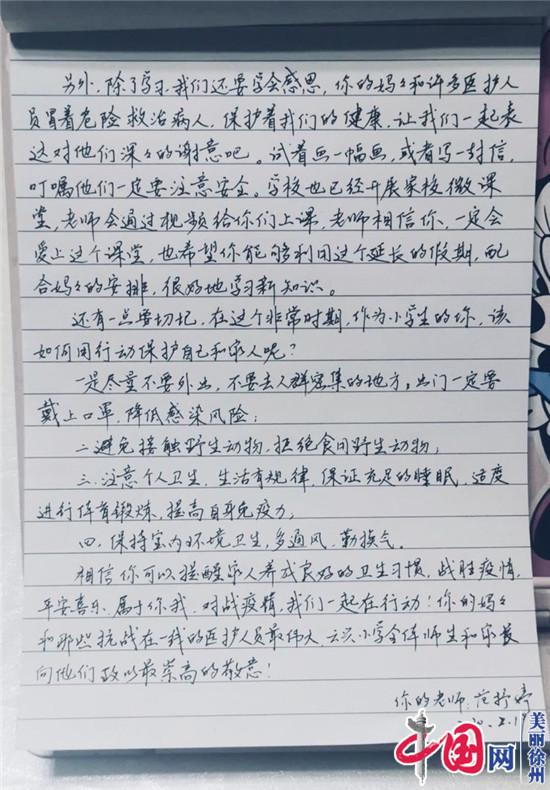 另外，除了学习，我们还要学会感恩，你的妈々和许多医护人
员冒着危险救治病人，保护着我们的健康，让我们一起表
达对他们深々的谢意吧。试着画一幅画，或者写一封信，
叮嘱他们一定要注意安全。学校也已经开展家校微课
堂，老师会通过视频给你们上课，老师相信你，一定会
爱上这个课堂，也希望你能够利用这个延长的假期，配
合妈々的安排，很好地学习新知识。
还有一点要切记，在这个非常时期，作为小学生的你，该
如何用行动保护自己和家人呢？
一是尽量不要外出，不要去人群密集的地方，出门一定要
戴上口罩，降低感染风险；
二避免接触野生动物，拒绝食用野生动物；
三.注意个人卫生，生活有规律，保证充足的睡眠，适度
进行体育锻炼，提高自身免疫力；
四.保持室内环境卫生，多通风，勤换气。
相信你可以提醒家人养成良好的卫生习惯，战胜疫情，
平安喜乐，属于你我，对战疫情，我们一起在行动！你的妈々
和那些抗战在一线的医护人员最伟大，云兴小学全体师生和家长
向他们致以最崇高的敬意！
你的老师：范
中国网
美丽徐州